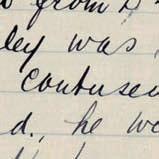 from
ley was
confused
d., he wa